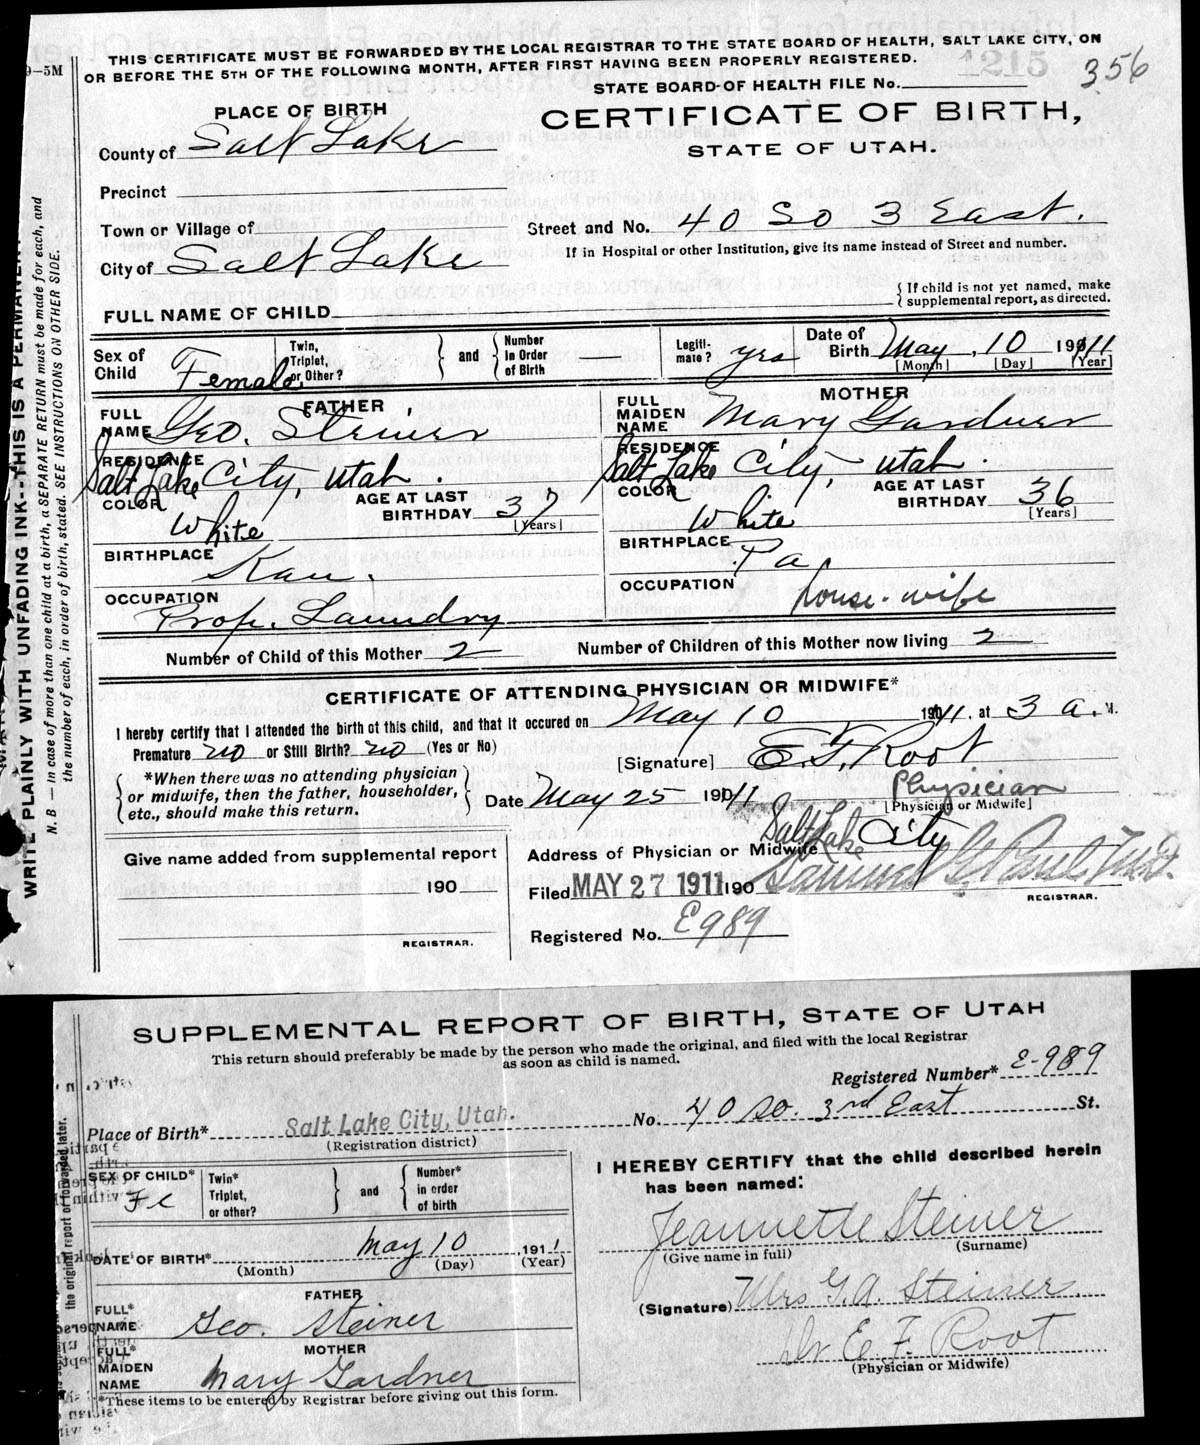 THIS CERTIFICATE MUST BE FORWARDED BY THE LOCAL REGISTRAR TO THE STATE BOARD OF HEALTH, SALT LAKE CITY, ON
OR BEFORE THE 5TH OF THE FOLLOWING MONTH, AFTER FIRST HAVING BEEN PROPERLY REGISTERED.
9-5M
1215
356
STATE BOARD OF HEALTH FILE No.
PLACE OF BIRTH
CERTIFICATE OF BIRTH,
STATE OF UTAH.
County of Salt Lake
Precinct
Town or Village of
Street and No. 40 So 3 East.
If in Hospital or other Institution, give its name instead of Street and number.
City of Salt Lake
FULL NAME OF CHILD
If child is not yet named, make
supplemental report, as directed.
Sex of Child Female
Twin, Triplet, or Other?
and
Number in Order of Birth —
Legiti-mate? yes
Date of Birth May, 10 1911
[Month] [Day] [Year]
FATHER
FULL NAME Geo. Steiner
RESIDENCE Salt Lake City, Utah.
COLOR White
AGE AT LAST BIRTHDAY 37
[Years]
BIRTHPLACE Kan.
OCCUPATION Prop. Laundry
MOTHER
FULL MAIDEN NAME Mary Gardner
RESIDENCE Salt Lake City, Utah.
COLOR White
AGE AT LAST BIRTHDAY 36
[Years]
BIRTHPLACE Pa.
OCCUPATION house-wife
Number of Child of this Mother 2
Number of Children of this Mother now living 2
CERTIFICATE OF ATTENDING PHYSICIAN OR MIDWIFE*
I hereby certify that I attended the birth of this child, and that it occured on May 10 1911. at 3 a. M.
Premature no or Still Birth? no (Yes or No)
[Signature] E. F. Root
*When there was no attending physician
or midwife, then the father, householder,
etc., should make this return.
Date May 25 1911
Physician
[Physician or Midwife]
Give name added from supplemental report
190
REGISTRAR.
Address of Physician or Midwife Salt Lake City
Filed MAY 27 1911 190
Samuel G. Paul M.D.
REGISTRAR.
Registered No. E989
WRITE PLAINLY WITH UNFADING INK--THIS IS A PERMANENT
N. B — In case of more than one child at a birth, a SEPARATE RETURN must be made for each, and
the number of each, in order of birth, stated. SEE INSTRUCTIONS ON OTHER SIDE.
SUPPLEMENTAL REPORT OF BIRTH, STATE OF UTAH
This return should preferably be made by the person who made the original, and filed with the local Registrar
as soon as child is named.
Registered Number* E-989
Place of Birth* Salt Lake City, Utah.
(Registration district)
No. 40 So. 3rd East St.
SEX OF CHILD* Fe
Twin* Triplet, or other?
and
Number* in order of birth
DATE OF BIRTH* May 10, 1911
(Month) (Day) (Year)
FATHER
FULL* NAME Geo. Steiner
MOTHER
FULL* MAIDEN NAME Mary Gardner
*These items to be entered by Registrar before giving out this form.
I HEREBY CERTIFY that the child described herein
has been named:
Jeannette Steiner
(Give name in full) (Surname)
(Signature) Mrs G. A. Steiner
Dr E. F. Root
(Physician or Midwife)
the original report of forwarded later.